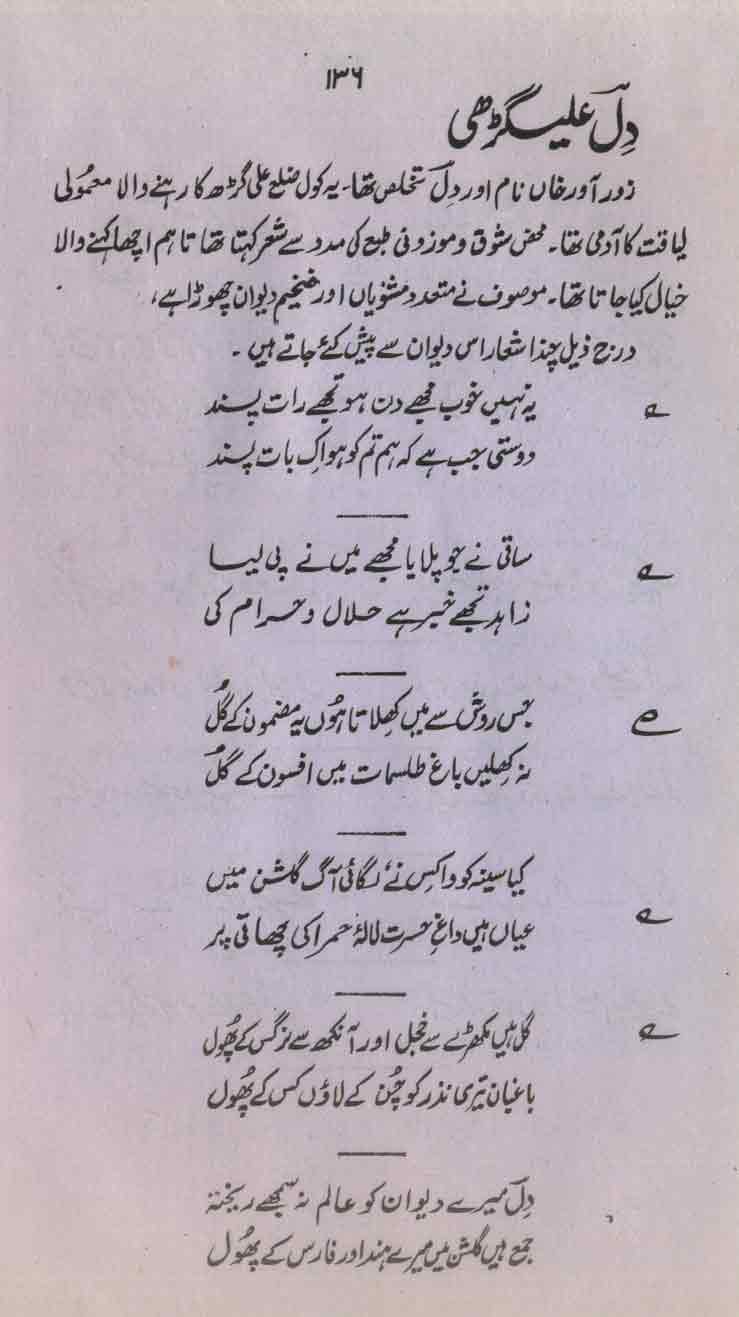 ۱۳۶
دِلؔ علیگڑھی
زور آور خاں نام اور دِلؔ تخلص تھا۔ یہ کول ضلع علی گڑھ کا رہنے والا معمُولی
لیاقت کا آدمی تھا۔ محض شوق و موزونی طبع کی مدد سے شعر کہتا تھا تاہم اچھا کہنے والا
خیال کیا جاتا تھا۔ موصوف نے متعدد مثنویاں اور ضخیم دیوان چھوڑا ہے،
درج ذیل چند اشعار اس دیوان سے پیش کئے جاتے ہیں ۔
یہ نہیں خوب مجھے دن ہو تجھے رات پسند
دوستی جب ہے کہ ہم تم کو ہو اِک بات پسند
ساقی نے جو پلایا مجھے میں نے پی لیا
زاہد تجھے خبر ہے حلال و حرام کی
جس روش سے میں کھِلاتا ہوں یہ مضمون کے گُل
نہ کھِلیں باغ طلسمات میں افسون کے گُل
کیا سینہ کو وا کِس نے لگائی آگ گلشن میں
عیاں ہیں داغِ حسرت لالۂ حمرا کی چھاتی پر
گل ہیں مکھڑے سے خجل اور آنکھ سے نرگس کے پھُول
باغباں تیری نذر کو چُن کے لاؤں کس کے پھُول
دِلؔ میرے دیوان کو عالم نہ سمجھے ریختہ
جمع ہیں گلشن میں میرے ہند اور فارس کے پھُول